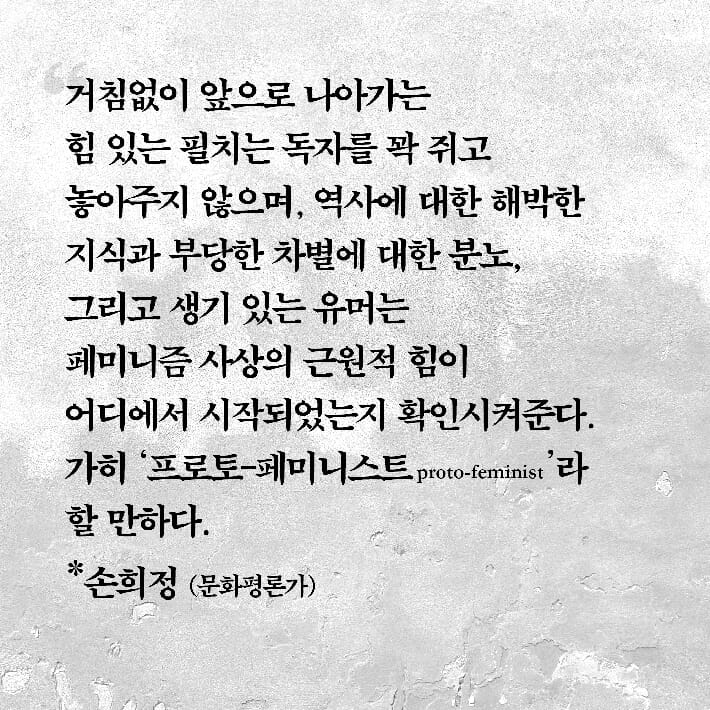 “
거침없이 앞으로 나아가는
힘 있는 필치는 독자를 꽉 쥐고
놓아주지 않으며, 역사에 대한 해박한
지식과 부당한 차별에 대한 분노,
그리고 생기 있는 유머는
페미니즘 사상의 근원적 힘이
어디에서 시작되었는지 확인시켜준다.
가히 ‘프로토-페미니스트 proto-feminist’라
할 만하다.
*손희정 (문화평론가)